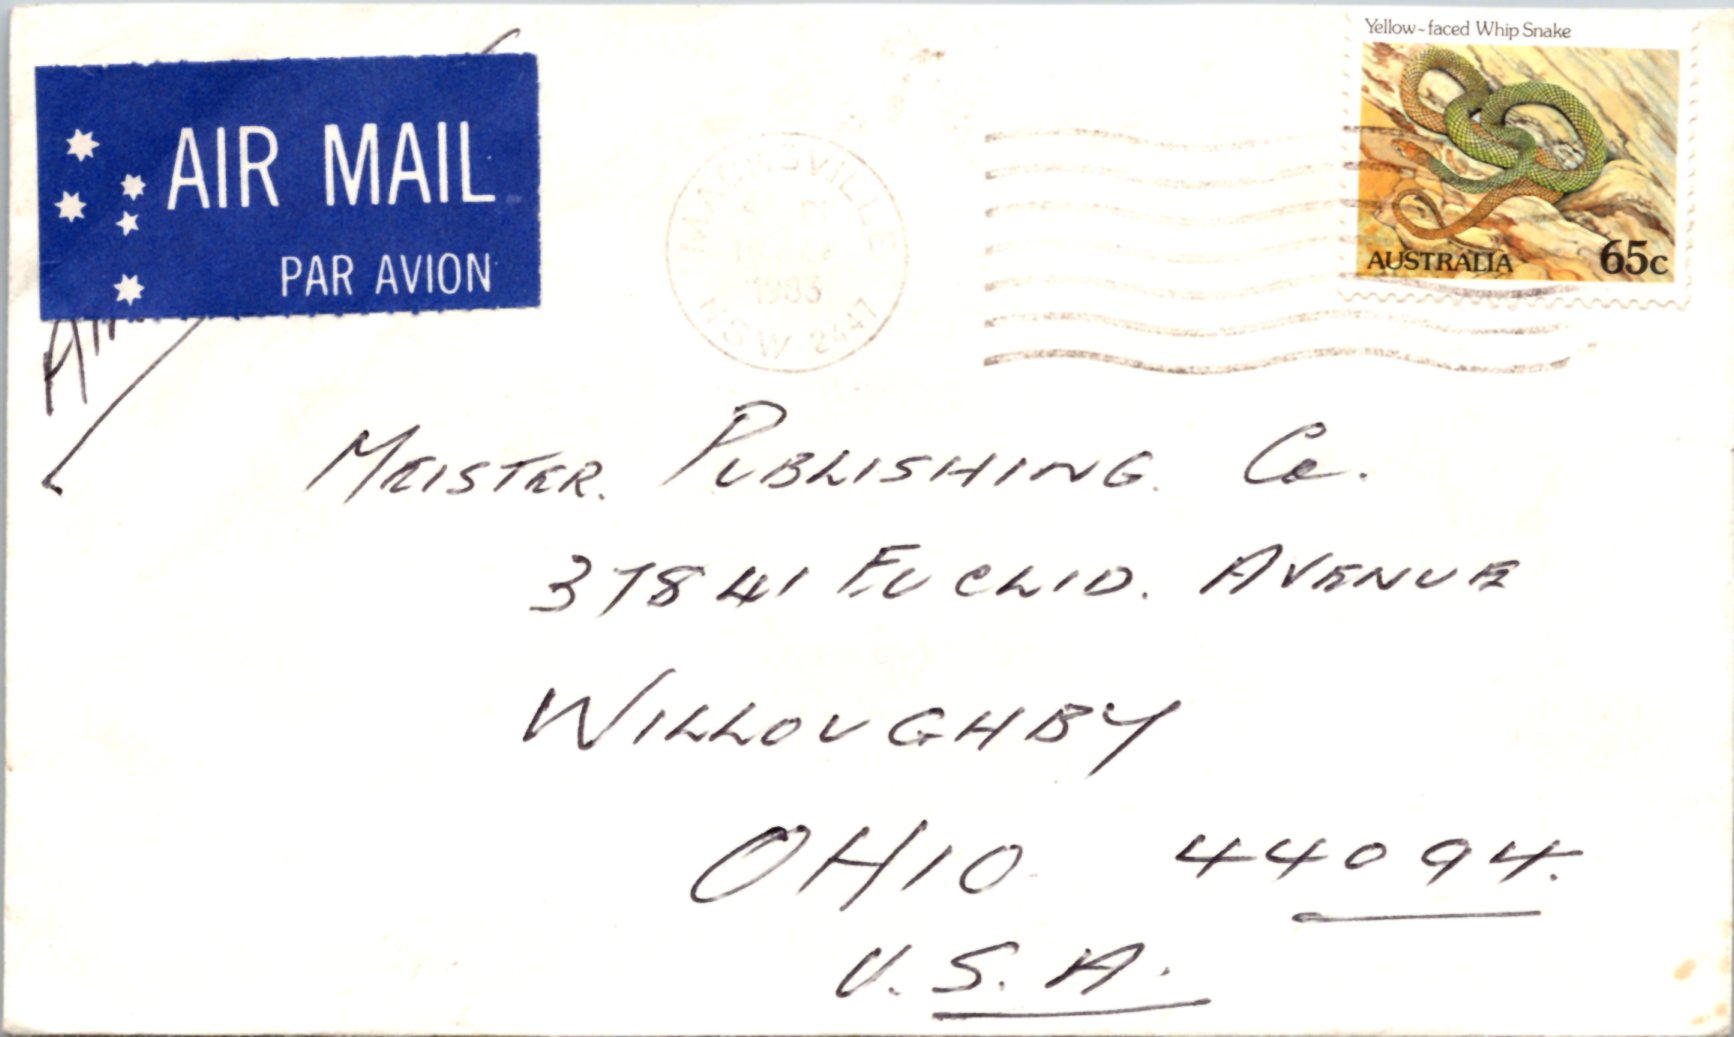 Yellow-faced Whip Snake
AIR MAIL
PAR AVION
MACKSVILLE
1983
NSW 2447
AUSTRALIA 65c
AIR
MEISTER. PUBLISHING. Co.
37841 EUCLID. AVENUE
WILLOUGHBY
OHIO 44094.
U.S.A.